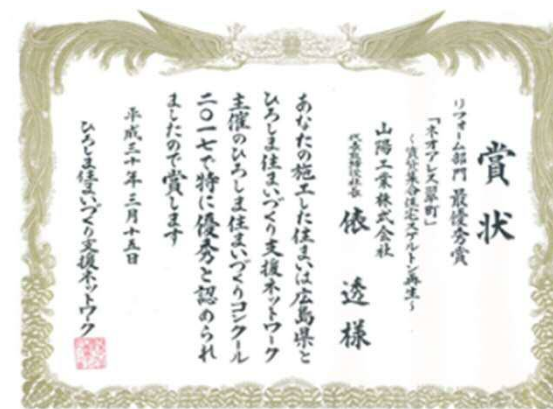 賞状
リフォーム部門 最優秀賞
「ネオアレス翠町」
～賃貸集合住宅スケルトン再生～
山陽工業株式会社
代表取締役社長 俵 透 様
あなたの施工した住まいは広島県と
ひろしま住まいづくり支援ネットワーク
主催のひろしま住まいづくりコンクール
二〇一七で特に優秀と認められ
ましたので賞します
平成三十年三月十五日
ひろしま住まいづくり支援ネットワーク